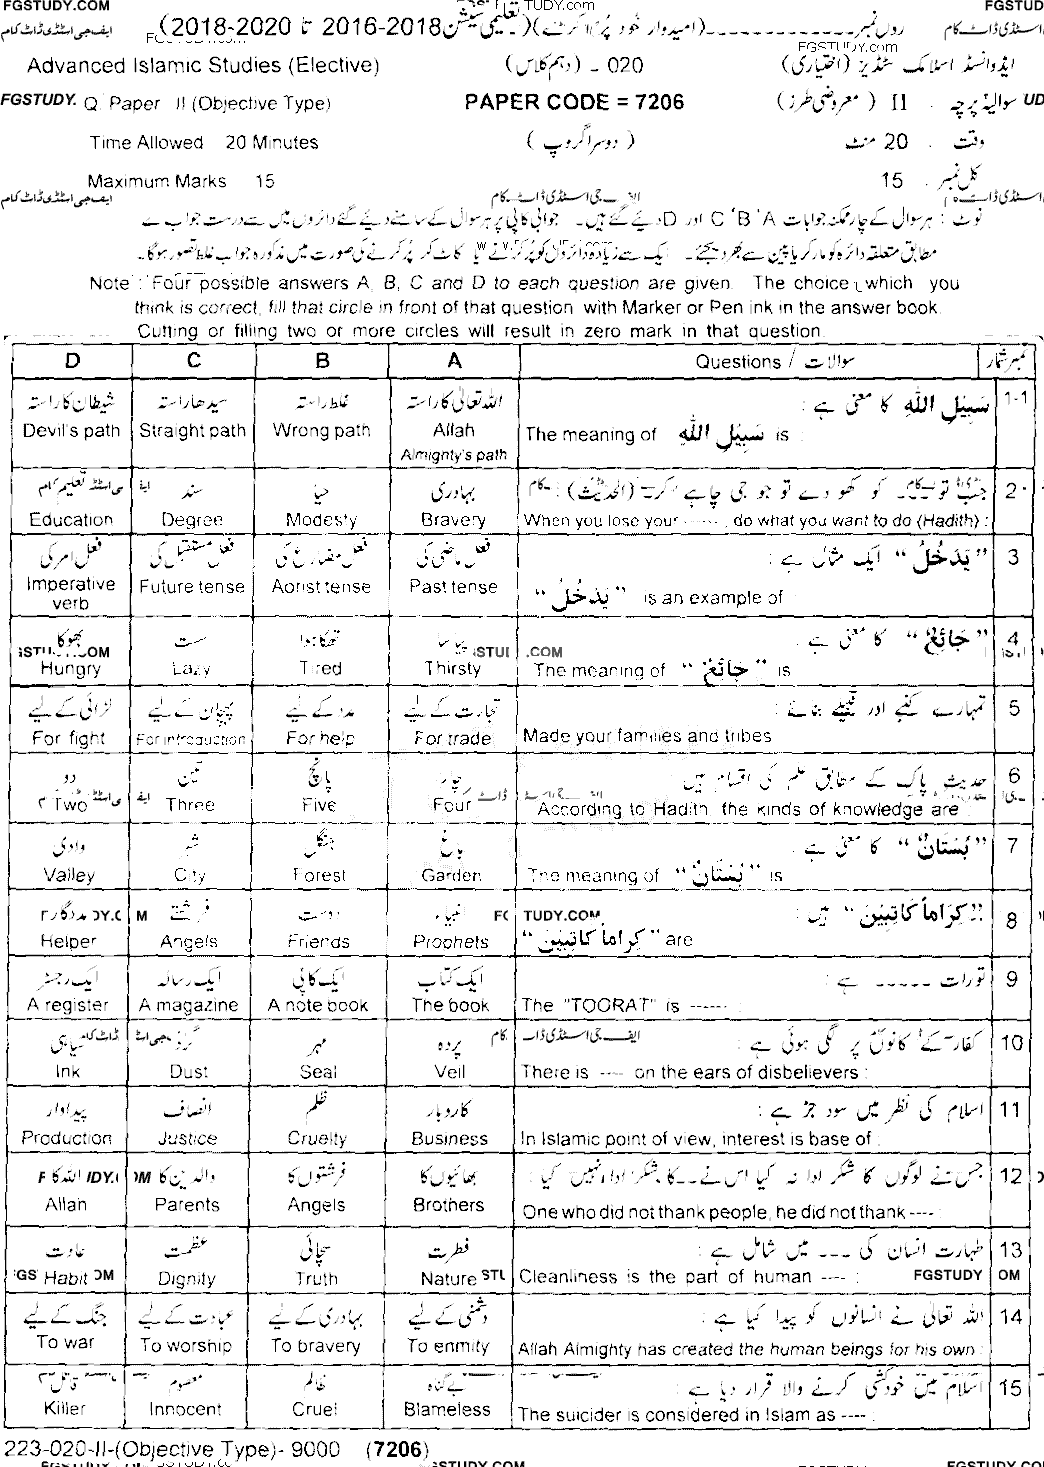 FGSTUDY.COM TUDY.com FGSTUD
رول نمبر (امیدوار خود پُر کرے) (تعلیمی سیشن 2018-2016 تا 2020-2018)
FGSTUDY.com
Advanced Islamic Studies (Elective) 020 - (دہم کلاس) ایڈوانسڈ اسلامک سٹڈیز (اختیاری)
FGSTUDY. Q. Paper II (Objective Type) PAPER CODE = 7206 سوالیہ پرچہ . II (معروضی طرز) UD
Time Allowed 20 Minutes (دوسرا گروپ) وقت . 20 منٹ
Maximum Marks 15 کل نمبر . 15
ایف جی اسٹڈی ڈاٹ کام
نوٹ : ہر سوال کے چار ممکنہ جوابات A ' B ' C اور D دیئے گئے ہیں۔ جوابی کاپی پر ہر سوال کے سامنے دیئے گئے دائروں میں سے درست جواب کے
مطابق متعلقہ دائرہ کو مارکر یا پین سے بھر دیجئے۔ ایک سے زیادہ دائروں کو پُر کرنے یا کاٹ کر پُر کرنے کی صورت میں مذکورہ جواب غلط تصور ہوگا۔
Note : Four possible answers A, B, C and D to each question are given. The choice which you
think is correct, fill that circle in front of that question with Marker or Pen ink in the answer book.
Cutting or filling two or more circles will result in zero mark in that question.
D C B A Questions / سوالات نمبر شمار
شیطان کا راستہ سیدھا راستہ غلط راستہ اللہ تعالیٰ کا راستہ سَبِیْلِ اللّٰهِ کا معنی ہے : 1-1
Devil's path Straight path Wrong path Allah Almighty's path The meaning of سَبِیْلِ اللّٰهِ is :
تعلیم سند حیا بہادری جب تو کو کھو دے تو جو جی چاہے کر (الحدیث) : 2
Education Degree Modesty Bravery When you lose your ------ , do what you want to do (Hadith) :
فعل امر کی فعل مستقبل کی فعل مضارع کی فعل ماضی کی ” یَدْخُلُ “ ایک مثال ہے : 3
Imperative verb Future tense Aorist tense Past tense ” یَدْخُلُ “ is an example of
بھوکا سست تھکا ہوا پیاسا ” جَائِعٌ “ کا معنی ہے : 4
GSTU .COM STUI .COM
Hungry Lazy Tired Thirsty The meaning of ” جَائِعٌ “ is
لڑائی کے لیے پہچان کے لیے مدد کے لیے تجارت کے لیے تمہارے کنبے اور قبیلے بنائے : 5
For fight For introduction For help For trade Made your families and tribes
دو تین پانچ چار حدیث پاک کے مطابق علم کی اقسام ہیں : 6
Two Three Five Four According to Hadith the kinds of knowledge are
وادی شہر جنگل باغ ” بُسْتَانٌ “ کا معنی ہے : 7
Valley City Forest Garden The meaning of ” بُسْتَانٌ “ is
مددگار فرشتے دوست انبیاء ” کِرَاماً کَاتِبِیْنَ “ ہیں : 8
DY.C M FG TUDY.COM
Helper Angels Friends Prophets ” کِرَاماً کَاتِبِیْنَ “ are
ایک رجسٹر ایک رسالہ ایک کاپی ایک کتاب تورات ----- ہے : 9
A register A magazine A note book The book The "TOORAT" is ----- :
سیاہی گرد مہر پردہ کفار کے کانوں پر لگی ہوئی ہے : 10
Ink Dust Seal Veil There is ---- on the ears of disbelievers :
پیداوار انصاف ظلم کاروبار اسلام کی نظر میں سود جڑ ہے : 11
Production Justice Cruelty Business In Islamic point of view, interest is base of :
اللہ کا والدین کا فرشتوں کا بھائیوں کا جس نے لوگوں کا شکر ادا نہ کیا اس نے -- کا شکر ادا نہیں کیا : 12
Allah Parents Angels Brothers One who did not thank people, he did not thank ---- :
عادت عظمت سچائی فطرت طہارت انسان کی --- میں شامل ہے : 13
Habit Dignity Truth Nature Cleanliness is the part of human ---- : FGSTUDY OM
جنگ کے لیے عبادت کے لیے بہادری کے لیے دشمنی کے لیے اللہ تعالیٰ نے انسانوں کو پیدا کیا ہے : 14
To war To worship To bravery To enmity Allah Almighty has created the human beings for his own :
قاتل معصوم ظالم بے گناہ اسلام میں خودکشی کرنے والا قرار دیا ہے : 15
Killer Innocent Cruel Blameless The suicider is considered in Islam as ---- :
223-020-II-(Objective Type)- 9000 (7206)
FGSTUDY.COM GSTUDY.COM FGSTUDY.CO